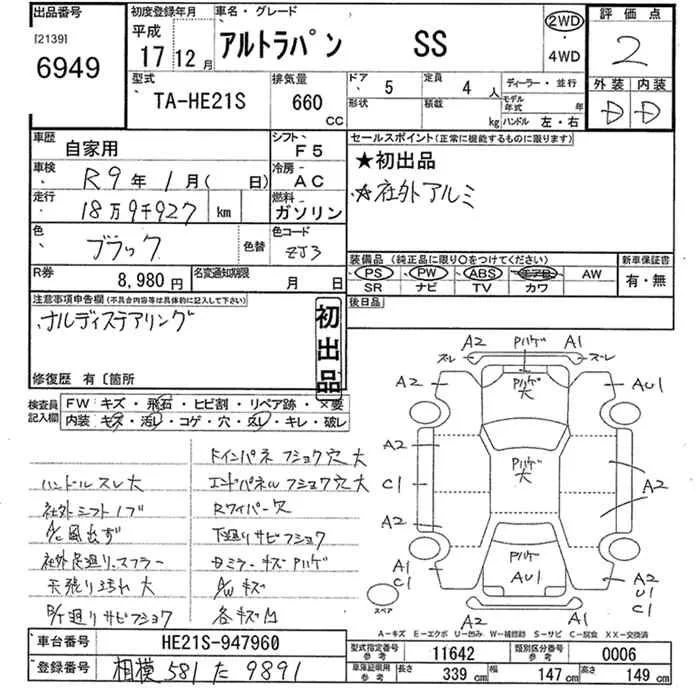 出品番号
[2139]
6949
初度登録年月
平成
17 12月
車名・グレード
アルトラパン SS
2WD
・
4WD
評価点
2
外装 内装
D D
型式
TA-HE21S
排気量
660 CC
ドア 5
定員 4 人
形状
積載 kg
ディーラー・並行
モデル年式 年
ハンドル 左・右
車歴
自家用
シフト F5
車検
R9年1月( 日)
冷房 AC
走行
18万9千927 km
燃料 ガソリン
色
ブラック
色替
色コード
ZJ3
R券
8,980円
名変通知期限
月 日
セールスポイント(正常に機能するものに限ります)
★初出品
☆社外アルミ
装備品(純正品に限り○をつけてください)
PS PW ABS エアB AW
SR ナビ TV カワ
新車保証書
有・無
後日品
注意事項申告欄(不具合内容等は具体的に記入して下さい)
ナルディステアリング
初出品
修復歴 有〔箇所
検査員記入欄
FW キズ・飛石・ヒビ割・リペア跡・×要
内装 キズ・汚レ・コゲ・穴・スレ・キレ・破レ
ハンドルスレ大
社外シフトノブ
A/C風出ず
社外足廻り、マフラー
天張り汚れ大
B/T廻りサビフショク
Fインパネフショク穴大
エンドパネルフショク穴大
Rワイパー欠
下廻りサビフショク
Dミラーキズハゲ
A/Wキズ
各キズ凹
ズレ A2 Pハゲ A1 ズレ
A2 Pハゲ大 AU1
A2
Pハゲ大
C1 A2
A2
Pハゲ
A1 AU1 A2
C1 U1
C1
スペア
A－キズ E－エクボ U－凹み W－補修跡 S－サビ C－腐食 XX－交換済
車台番号 HE21S-947960
登録番号 相模 581 た 9891
型式指定番号 参考 11642
類別区分番号 参考 0006
車庫証明用 参考 長さ 339 cm 幅 147 cm 高さ 149 cm